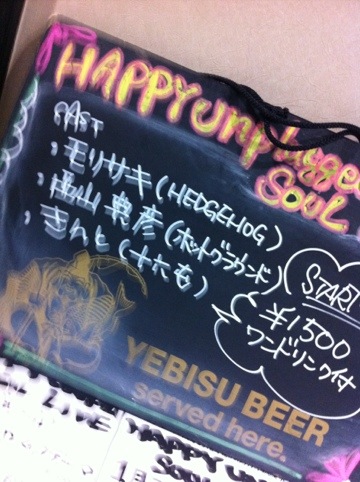 HAPPY unplugged
SOUL
CAST
・モリサキ(HEDGEHOG)
・西山典彦(ホットグラウンド)
・きんと(十六古)
START
¥1500
ワンドリンク付
YEBISU BEER
served here.
LIVE HAPPY UN
SOUL